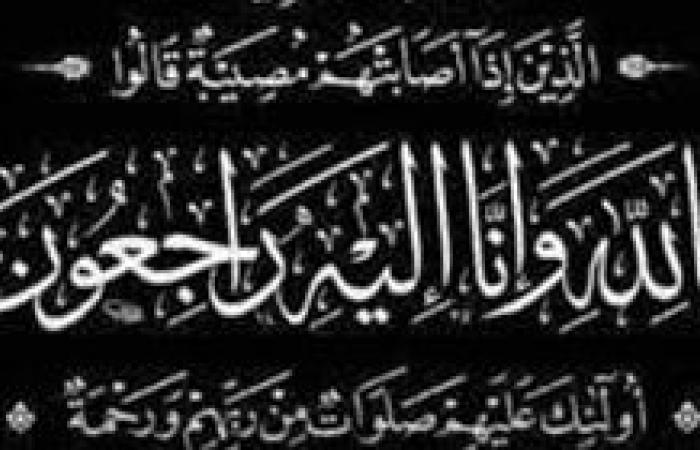 الَّذِينَ إِذَا أَصَابَتْهُمْ مُصِيبَةٌ قَالُوا
لِلَّهِ وَإِنَّا إِلَيْهِ رَاجِعُونَ
أُولَٰئِكَ عَلَيْهِمْ صَلَوَاتٌ مِنْ رَبِّهِمْ وَرَحْمَةٌ